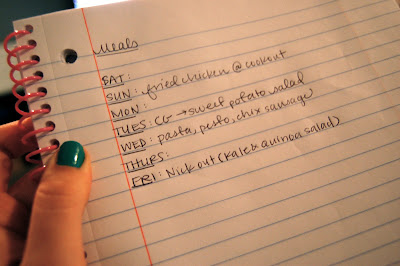 Meals
SAT:
SUN: fried chicken @ cookout
MON:
TUES: CG → sweet potato salad
WED: pasta, pesto, chix sausage
THURS:
FRI: Nick out (Kale & quinoa salad)